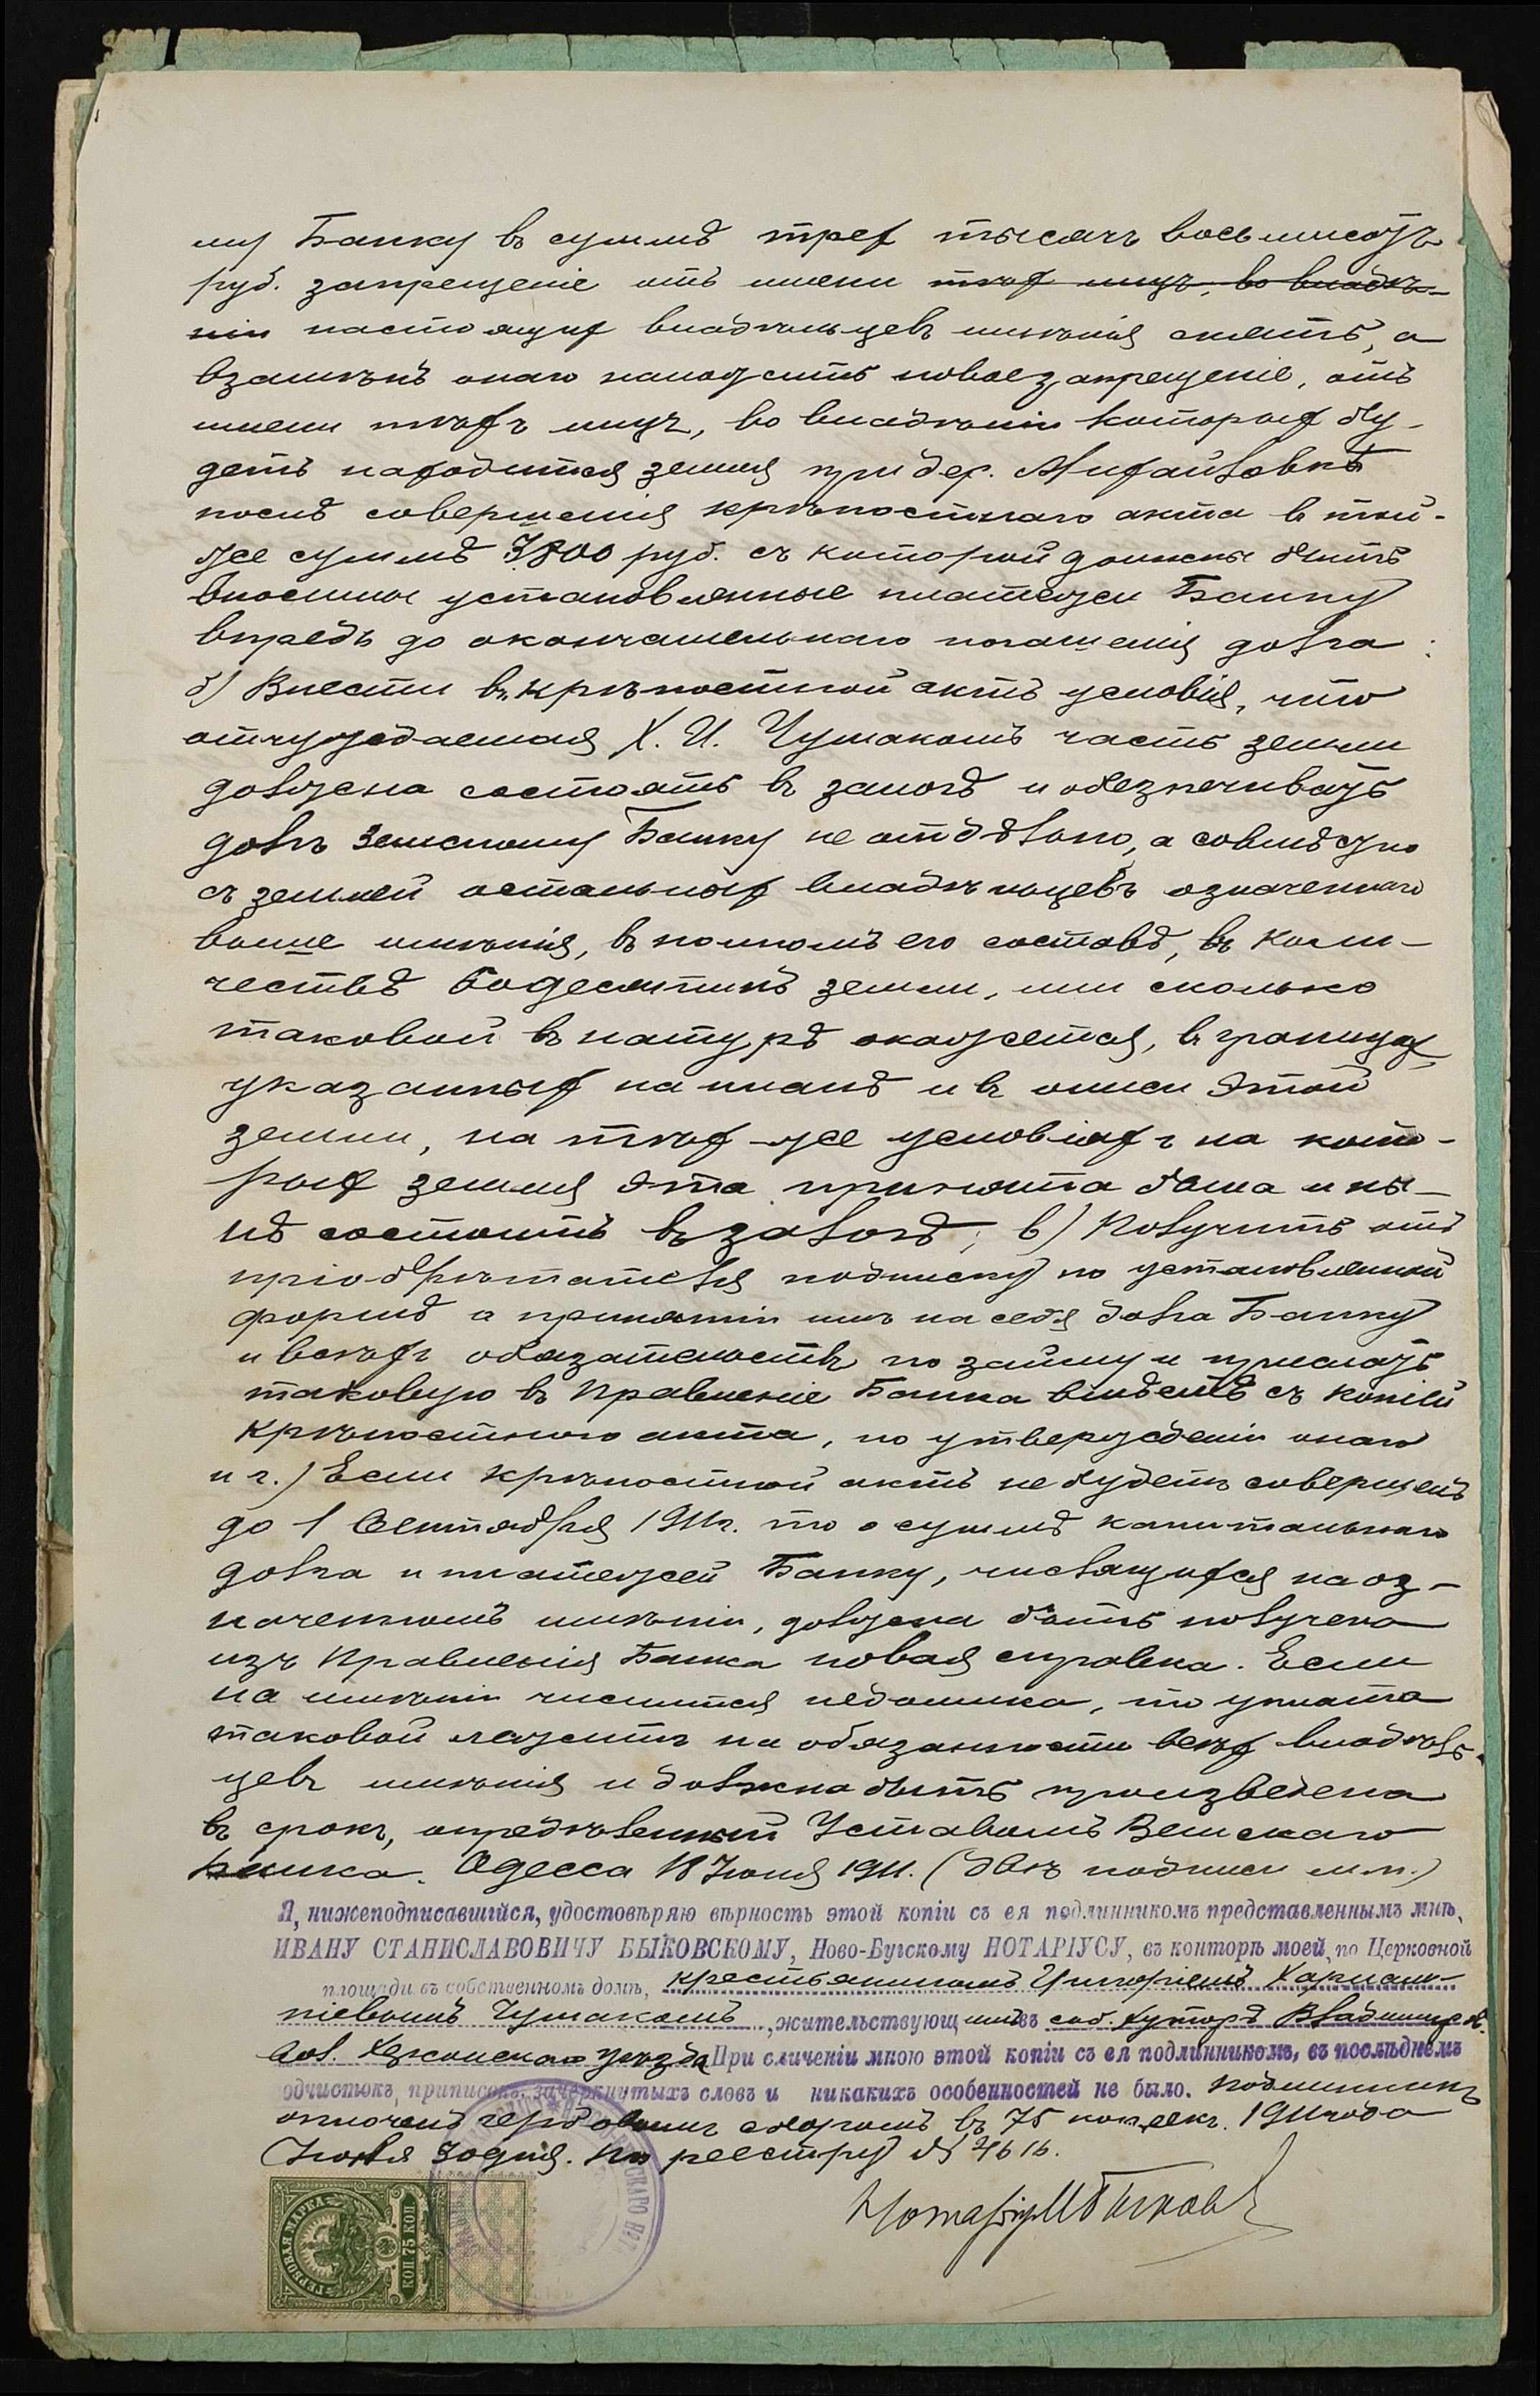 му Банку въ суммѣ трех тысячъ восьмисотъ
руб. запрещеніе отъ имени тѣх лицъ, во владѣ-
ніи настоящих владѣльцевъ имѣнія снять, а
взамѣнъ онаго наложить новое запрещеніе, отъ
имени тѣхъ лицъ, во владѣніи которых бу-
детъ находится земля при дер. Михайловкѣ
послѣ совершенія крѣпостнаго акта въ той-
же суммѣ 3800 руб. съ которой должны быть
вносимы установленные платежи Банку
впредь до окончательнаго погашенія долга:
б) Внести въ крѣпостной актъ условія, что
отчуждаемая Х. И. Чумакомъ часть земли
должена состоять въ залогѣ и обезпечивать
долгъ Земскому Банку не отдѣльно, а совмѣстно
съ землей остальных владѣльцевъ означеннаго
выше имѣнія, въ полномъ его составѣ, въ коли-
чествѣ 60 десятинъ земли, или сколько
таковой въ натурѣ окажется, въ границах
указанных на планѣ и въ описи этой
земли, на тѣх-же условіяхъ на кото-
рых земля эта принята была и ны-
нѣ состоитъ въ залогѣ; в) Получить отъ
пріобрѣтателя подписку по установленной
формѣ о принятіи имъ на себя долга Банку
и всѣхъ обязательствъ по займу и прислать
таковую въ Правленіе Банка вмѣстѣ съ копіей
крѣпостного акта, по утвержденіи онаго
и г.) Если крѣпостной актъ не будетъ совершенъ
до 1 Сентября 1911г. то о суммѣ капитальнаго
долга и платежей Банку, числящихся на оз-
наченномъ имѣніи, должена быть получена
изъ Правленія Банка новая справка. Если
на имѣніи числится недоимка, то уплата
таковой лежитъ на обязанности всѣх владѣль-
цевъ имѣнія и должна быть произведена
въ срокъ, опредѣленный Уставомъ Земскаго
Банка. Одесса 18 Іюня 1911. (двѣ подписи м.п.)
Я, нижеподписавшійся, удостовѣряю вѣрность этой копіи съ ея подлинникомъ представленнымъ мнѣ,
ИВАНУ СТАНИСЛАВОВИЧУ БЫКОВСКОМУ, Ново-Бугскому НОТАРІУСУ, въ конторѣ моей, по Церковной
площади въ собственномъ домѣ, крестьяниномъ Григоріемъ Харлам-
піевымъ Чумакомъ, жительствующимъ въ соб. хуторѣ Владимиров.
вол. Херсонскаго уѣзда При сличеніи мною этой копіи съ ея подлинникомъ, въ послѣднемъ
одчистокъ, приписокъ, зачеркнутыхъ словъ и никакихъ особенностей не было. Подлинникъ
оплоченъ гербовымъ сборомъ въ 75 копѣекъ. 1911 года
Іюля 30 дня. По реестру №
Нотаріус И Быковск
ГЕРБОВАЯ МАРКА
КОП 75 КОП